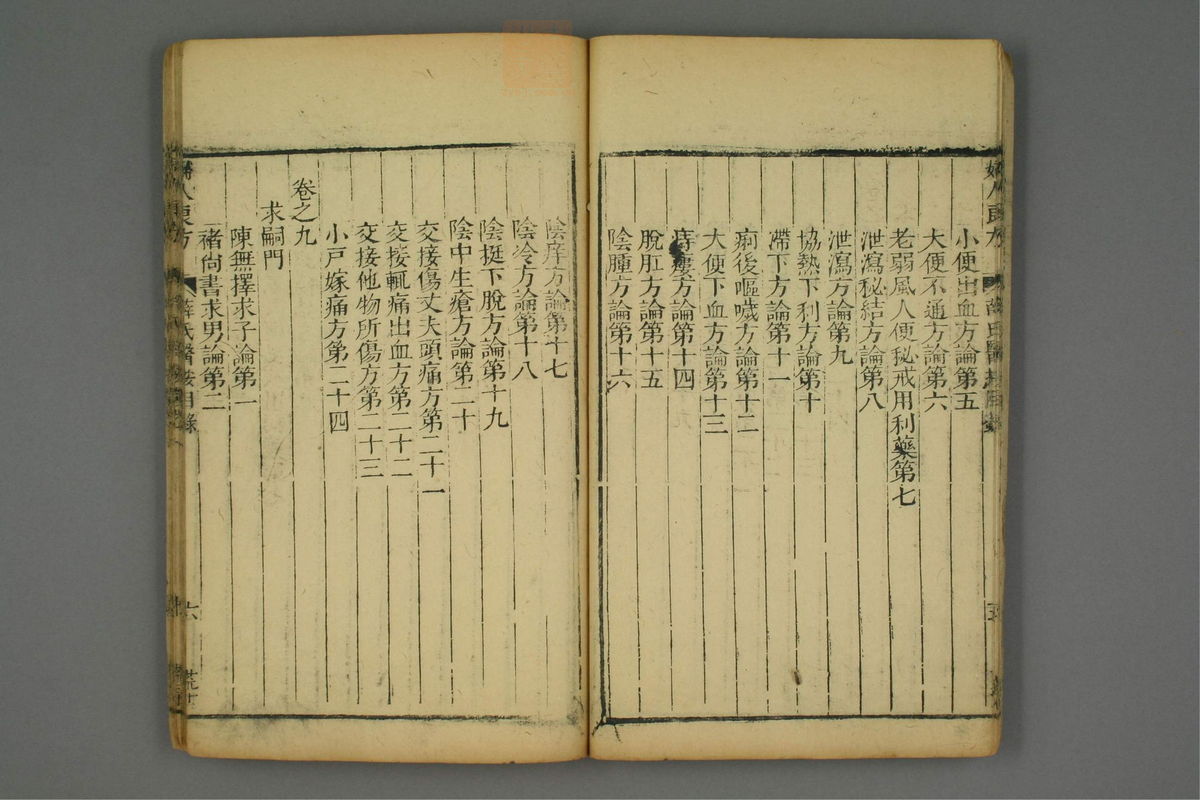 小便出血方論第五
大便不通方論第六
老弱風人便秘戒用利藥第七
泄瀉秘結方論第八
泄瀉方論第九
協熱下利方論第十
滯下方論第十一
痢後嘔噦方論第十二
大便下血方論第十三
痔瘻方論第十四
脫肛方論第十五
陰腫方論第十六
陰痒方論第十七
陰冷方論第十八
陰挺下脫方論第十九
陰中生瘡方論第二十
交接傷丈夫頭痛方第二十一
交接輒痛出血方第二十二
交接他物所傷方第二十三
小戶嫁痛方第二十四
卷之九
求嗣門
陳無擇求子論第一
褚尚書求男論第二
人良方 薛氏醫按目錄 六